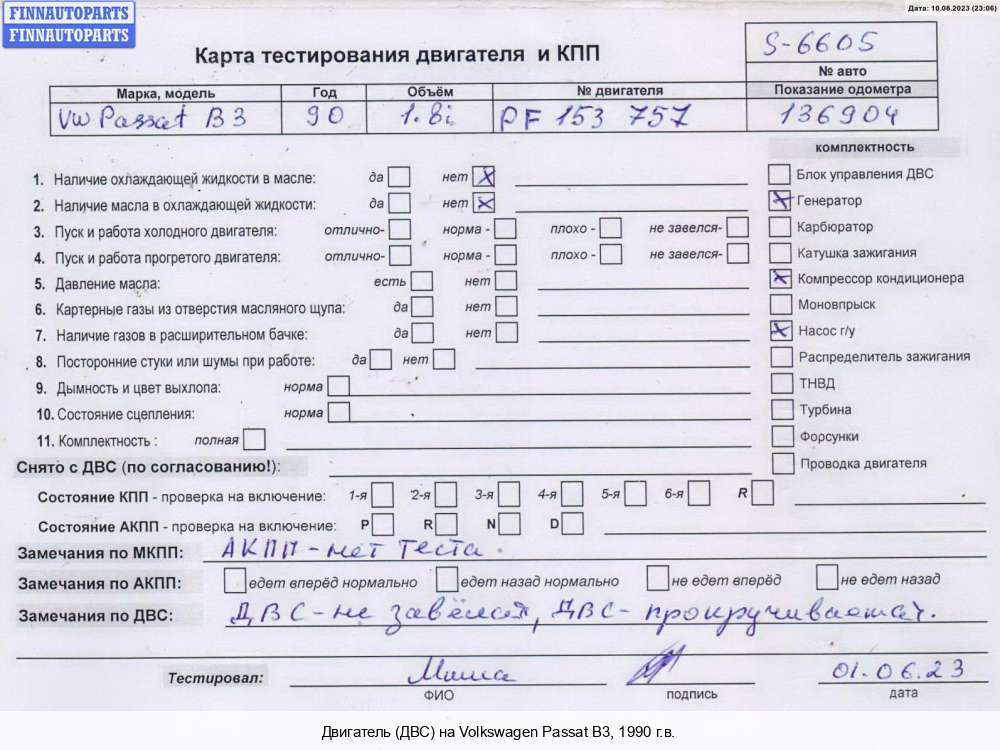 FINNAUTOPARTS
FINNAUTOPARTS
Дата: 10.08.2023 (23:06)
Карта тестирования двигателя и КПП
S-6605
№ авто
Марка, модель Год Объём № двигателя Показание одометра
VW Passat B3 90 1.8i PF 153 757 136904
комплектность
1. Наличие охлаждающей жидкости в масле: да нет X
2. Наличие масла в охлаждающей жидкости: да нет X
3. Пуск и работа холодного двигателя: отлично- норма - плохо - не завелся-
4. Пуск и работа прогретого двигателя: отлично- норма - плохо - не завелся-
5. Давление масла: есть нет
6. Картерные газы из отверстия масляного щупа: да нет
7. Наличие газов в расширительном бачке: да нет
8. Посторонние стуки или шумы при работе: да нет
9. Дымность и цвет выхлопа: норма
10. Состояние сцепления: норма
11. Комплектность : полная
Блок управления ДВС
X Генератор
Карбюратор
Катушка зажигания
X Компрессор кондиционера
Моновпрыск
X Насос г/у
Распределитель зажигания
ТНВД
Турбина
Форсунки
Проводка двигателя
Снято с ДВС (по согласованию!):
Состояние КПП - проверка на включение: 1-я 2-я 3-я 4-я 5-я 6-я R
Состояние АКПП - проверка на включение: P R N D
Замечания по МКПП: АКПП-нет теста.
Замечания по АКПП: едет вперёд нормально едет назад нормально не едет вперёд не едет назад
Замечания по ДВС: ДВС-не завёлся, ДВС-прокручивается.
Тестировал: Миша 01.06.23
ФИО подпись дата
Двигатель (ДВС) на Volkswagen Passat B3, 1990 г.в.